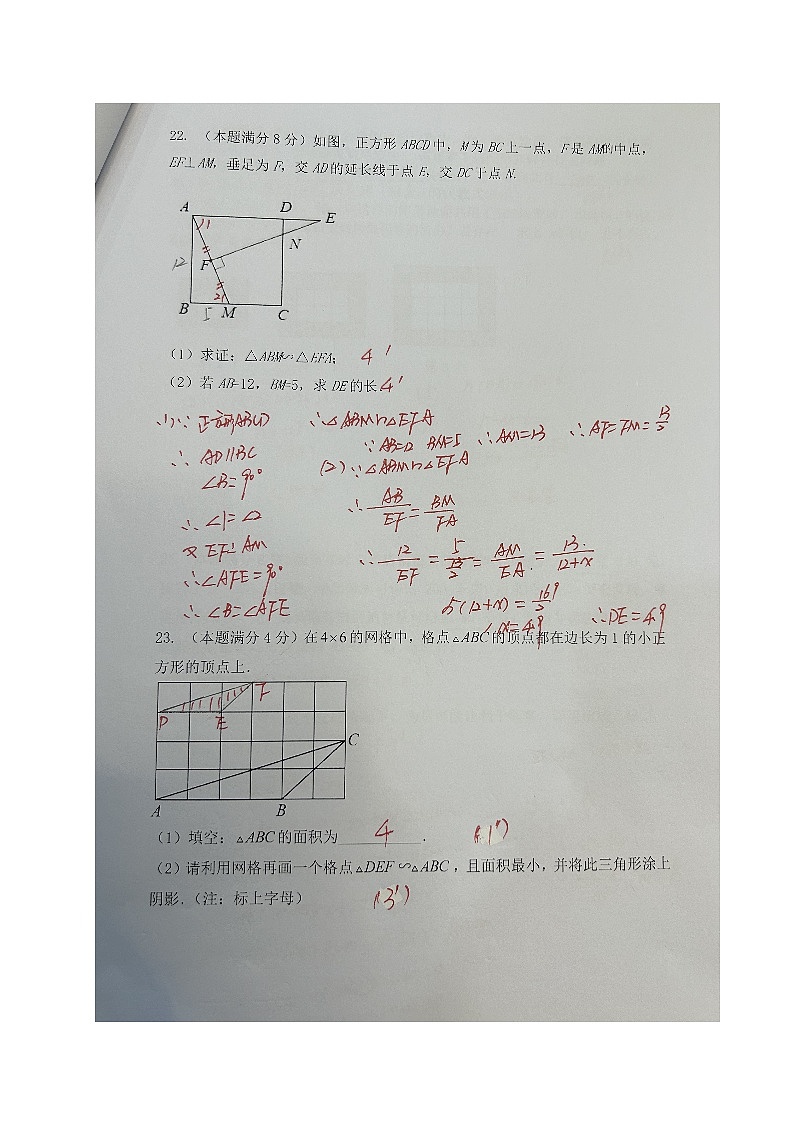 22. （本题满分8分）如图，正方形ABCD中，M为BC上一点，F是AM的中点，
EF⊥AM，垂足为F，交AD的延长线于点E，交DC于点N.
A D E
1
N
12 F
2
B 5 M C
（1）求证：△ABM∽△EFA； 4'
（2）若AB=12，BM=5，求DE的长 4'
(1)∵正方形ABCD ∴△ABM∽△EFA
∵AB=12 BM=5 ∴AM=13 ∴AF=FM=13/2
∴AD∥BC (2)∵△ABM∽△EFA
∠B=90°
∴AB/EF=BM/FA
∴∠1=∠2
又EF⊥AM ∴12/EF=5/(13/2)=AM/EA=13/(12+x)
∴∠AFE=90° 5(12+x)=169/2
∴∠B=∠AFE ∴x=4.9 ∴DE=4.9
23. （本题满分4分）在4×6的网格中，格点△ABC的顶点都在边长为1的小正
方形的顶点上.
F
D E
C
A B
（1）填空：△ABC的面积为 4 . (1')
（2）请利用网格再画一个格点△DEF∽△ABC，且面积最小，并将此三角形涂上
阴影.（注：标上字母） (3')